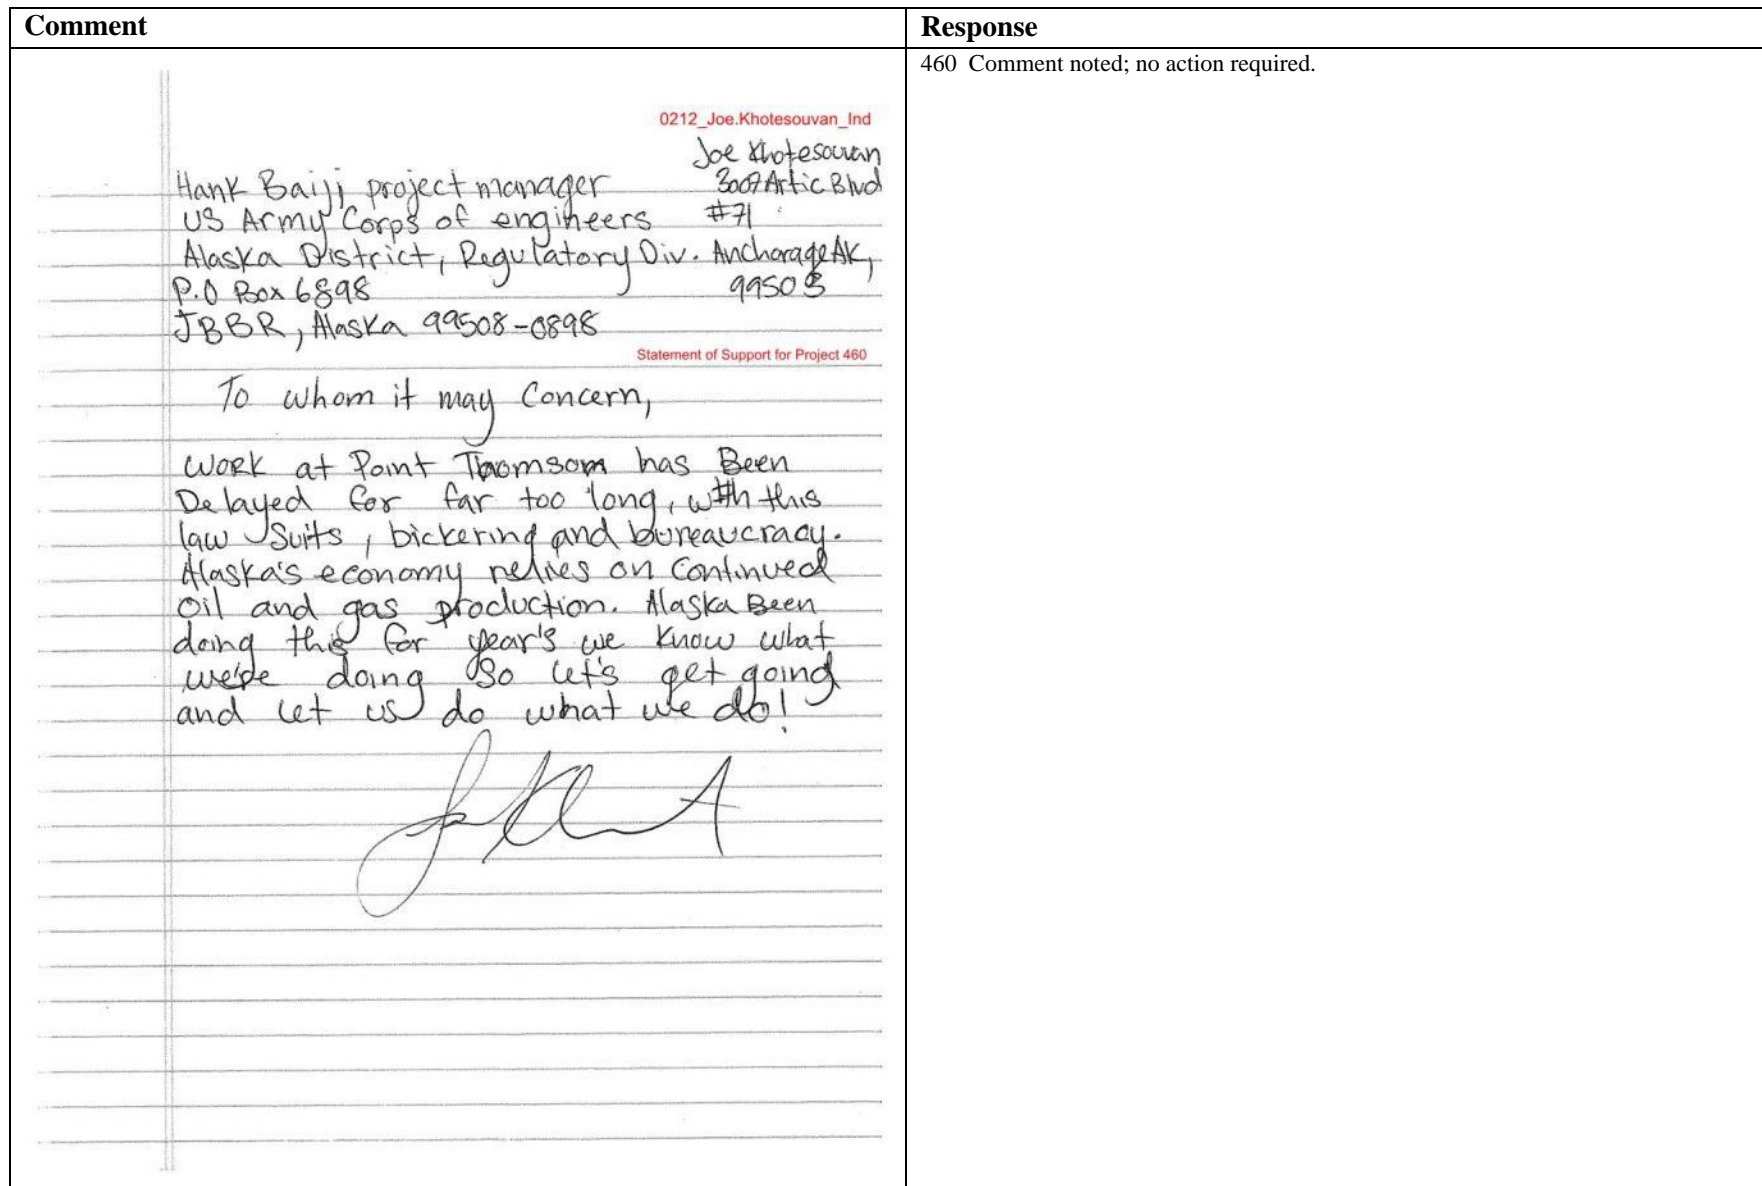 Comment
Response
460 Comment noted; no action required.
0212_Joe.Khotesouvan_Ind
Joe Khotesouvan
3007 Artic Blvd
#71
Anchorage AK,
99503
Hank Baiji project manager
US Army Corps of engineers
Alaska District, Regulatory Div.
P.O Box 6898
JBBR, Alaska 99508-0898
Statement of Support for Project 460
To whom it may Concern,
WORK at Point Thomsom has Been
Delayed for far too long, with this
law Suits, bickering and bureaucracy.
Alaska's economy relies on Continued
oil and gas production. Alaska Been
doing this for year's we know what
we're doing So let's get going
and let us do what we do!